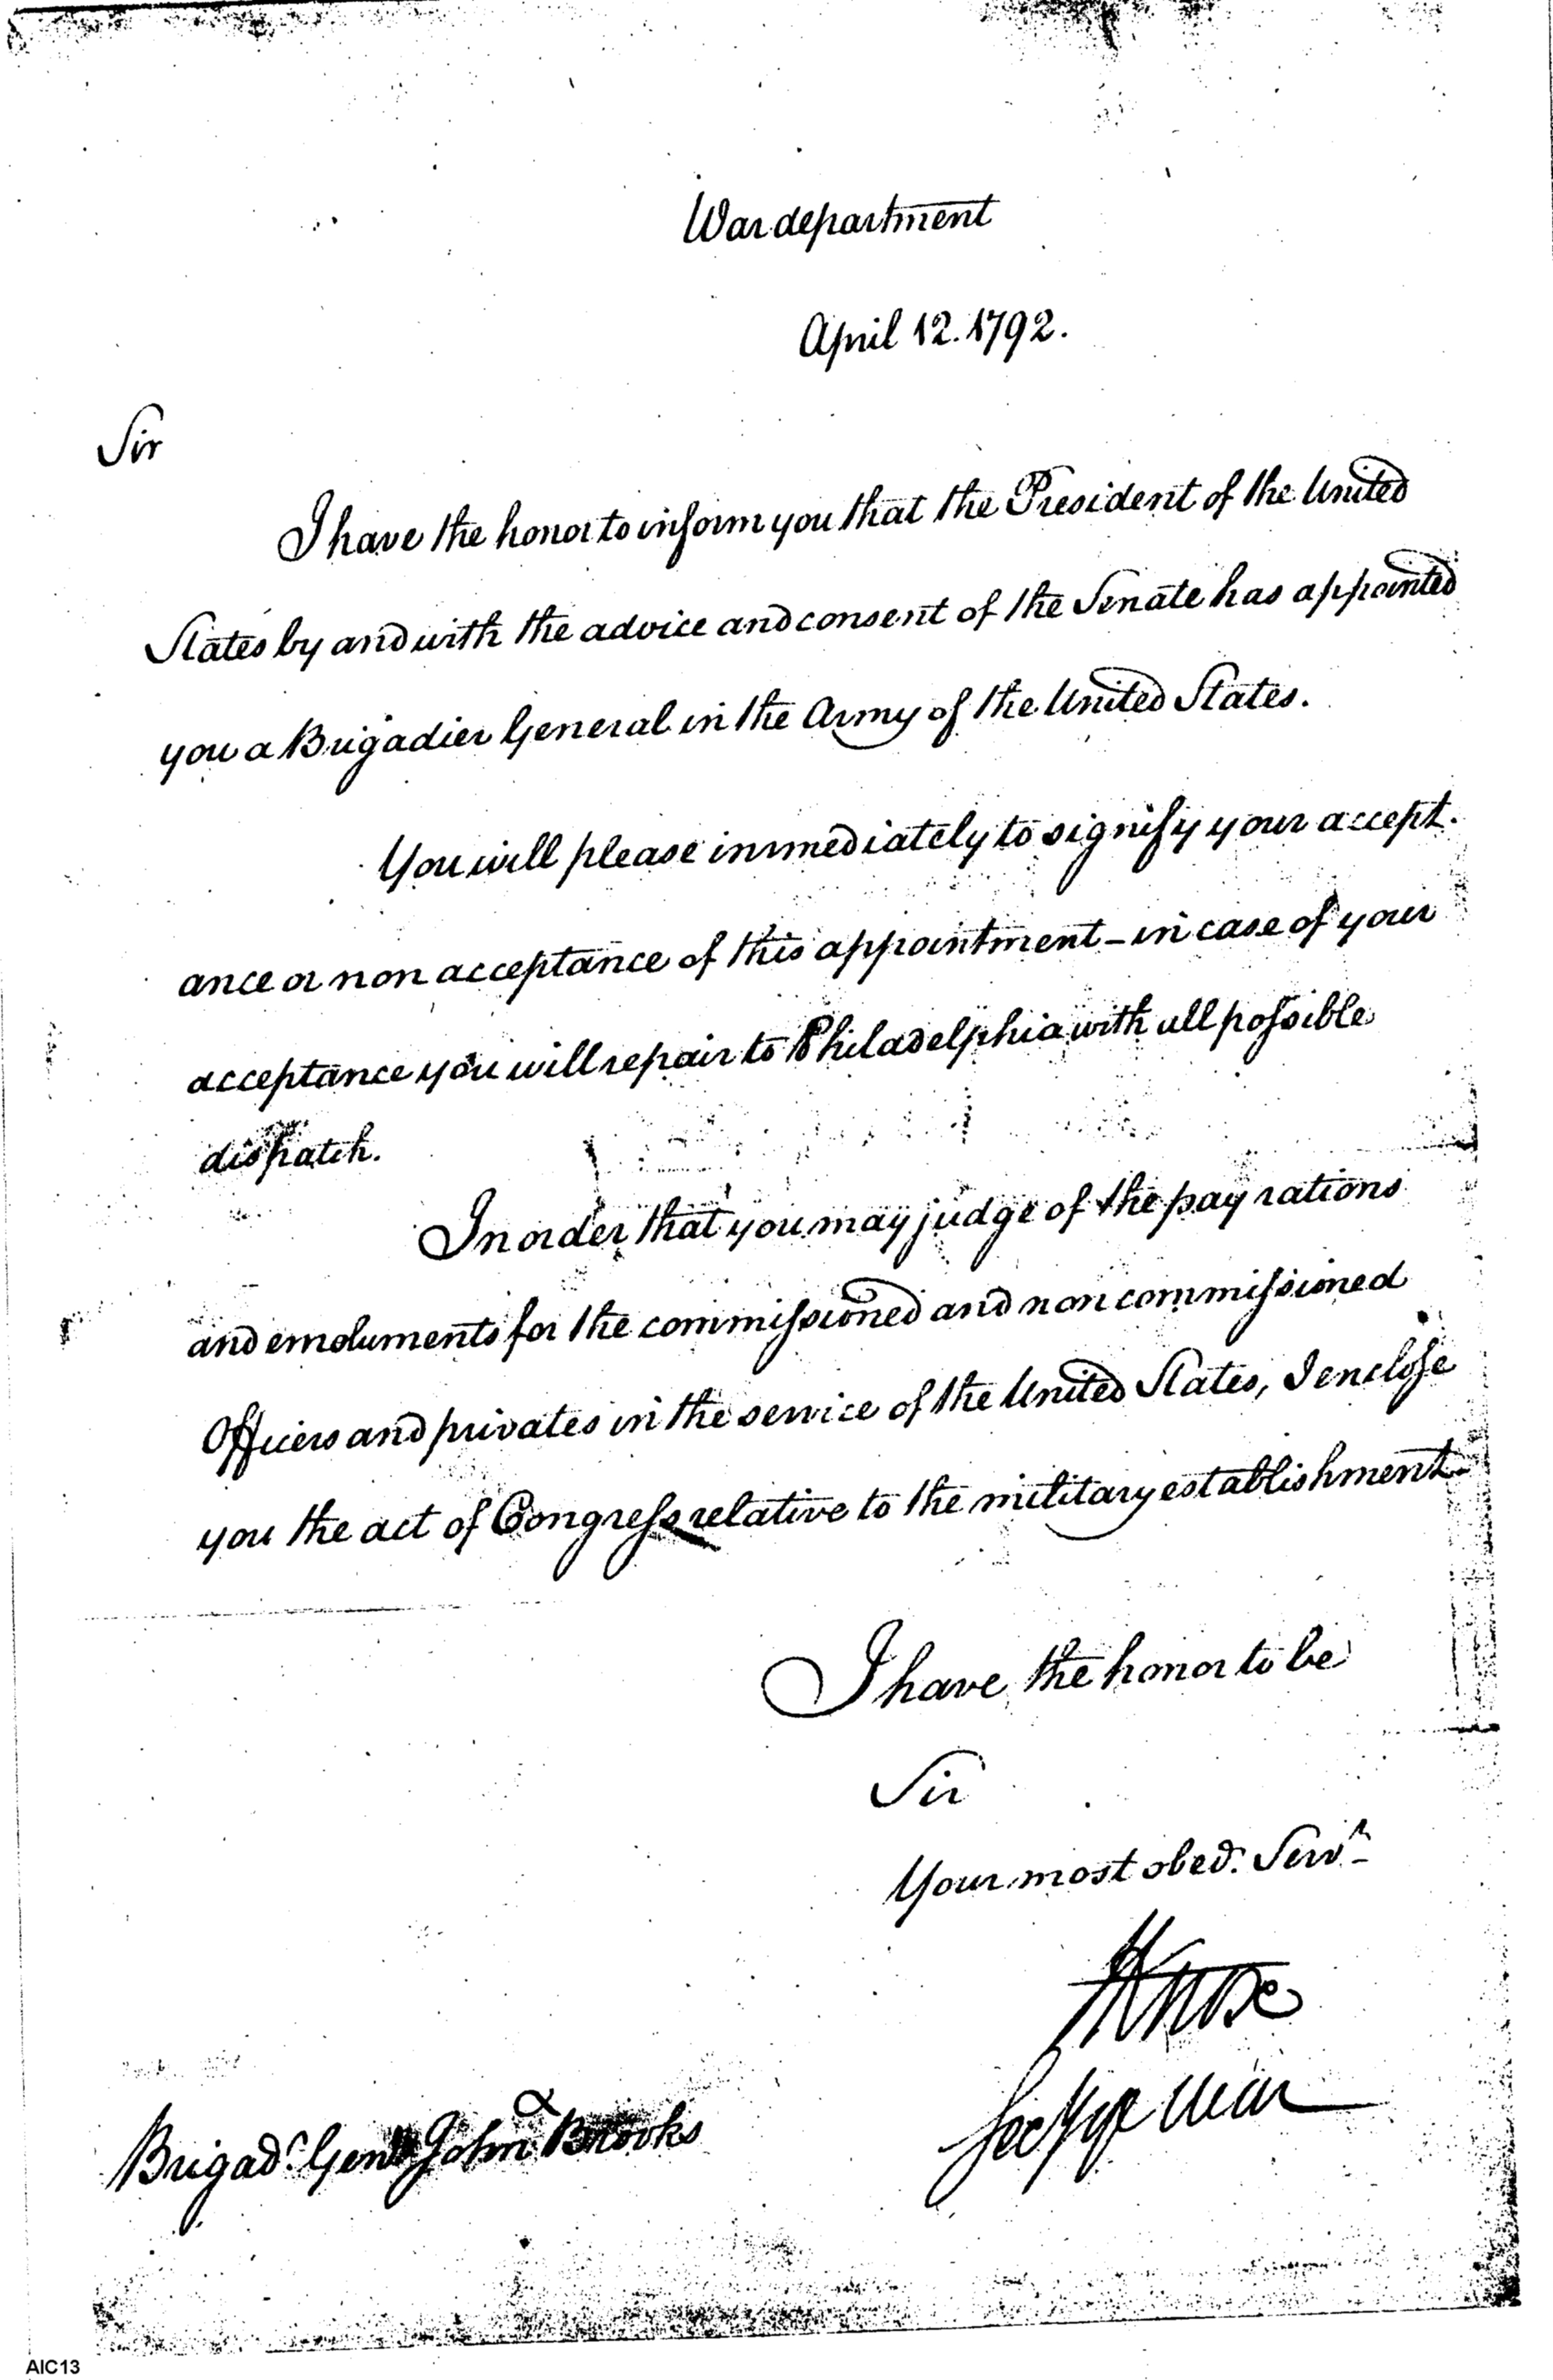 War department
April 12. 1792.
Sir
I have the honor to inform you that the President of the United
States by and with the advice and consent of the Senate has appointed
you a Brigadier General in the Army of the United States.
You will please immediately to signify your accept-
ance or non acceptance of this appointment – in case of your
acceptance you will repair to Philadelphia with all possible
dispatch.
In order that you may judge of the pay rations
and emoluments for the commissioned and non commissioned
Officers and privates in the service of the United States, I enclose
you the act of Congress relative to the military establishment.
I have the honor to be
Sir
Your most obed. Servt
HKnox
Secy of War
Brigadr. Genl John Brooks
AIC13